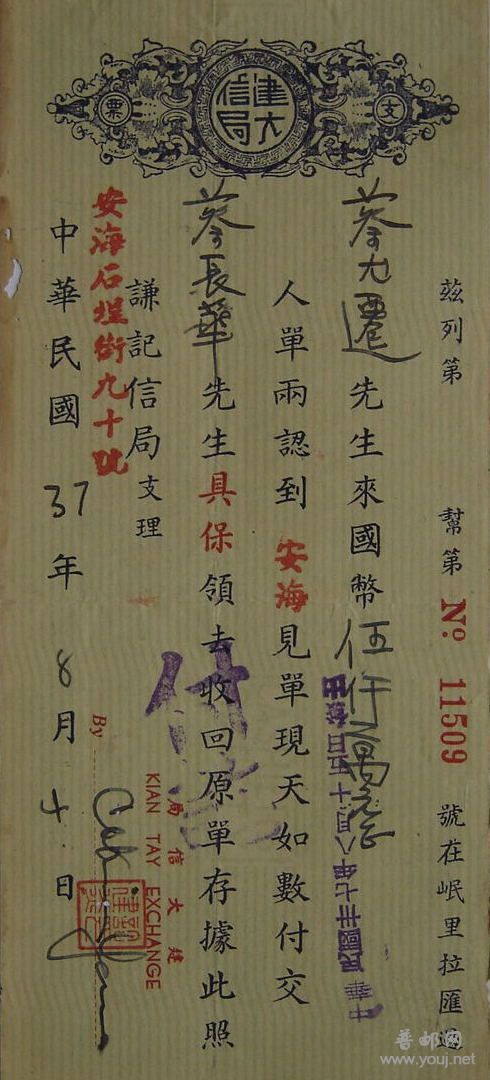 支票
建大信局
茲列第 幫第 Nº 11509 號在岷里拉匯過
蔡九遷先生來國幣伍仟萬元正
中華民國卅七年八月十五日
人單兩認到安海見單現天如數付交
蔡長華先生具保領去收回原單存據此照
付
謙記信局支理
建大信局
KIAN TAY EXCHANGE
By
安海石埕街九十號
中華民國37年8月4日
普邮网
www.youj.net